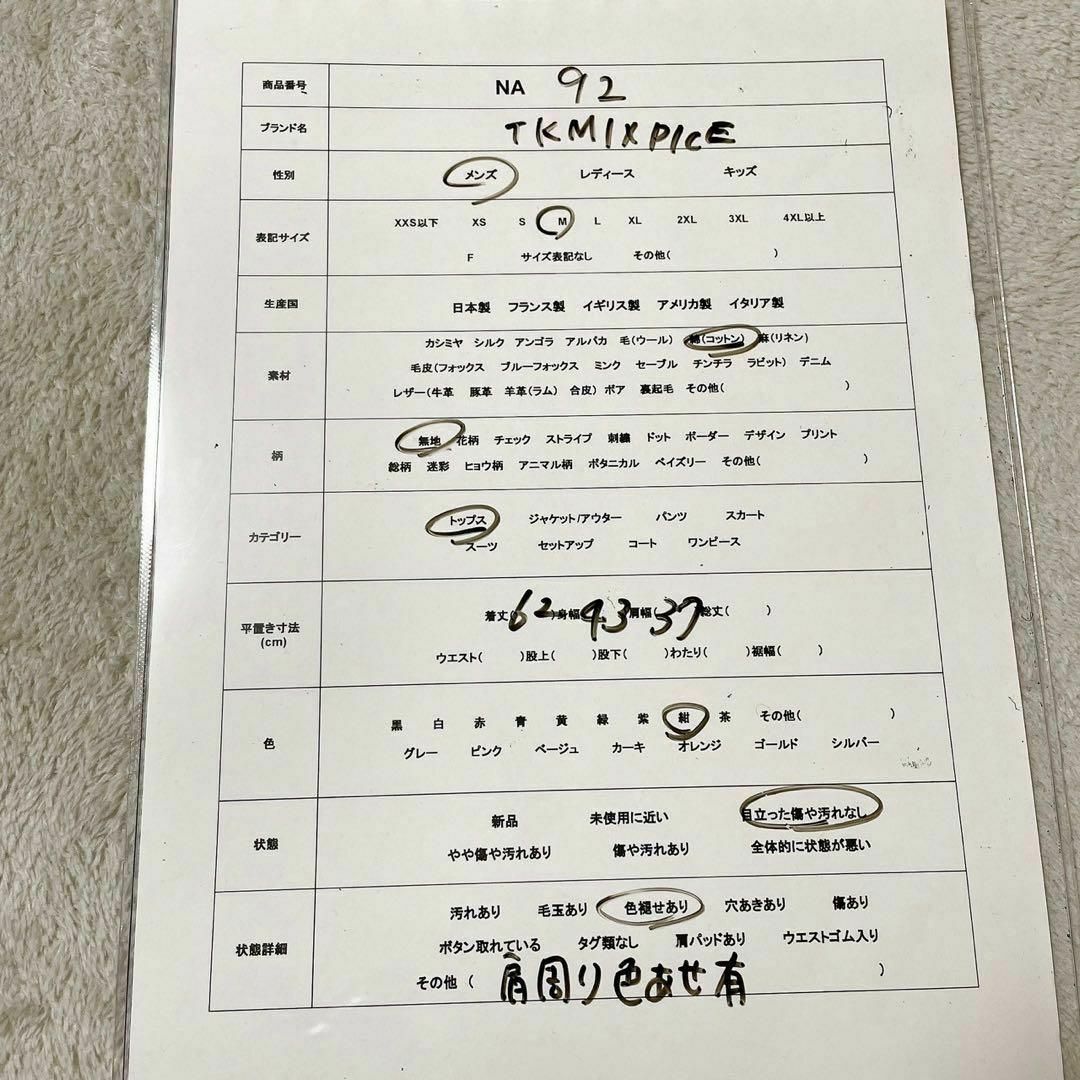 商品番号 NA 92
ブランド名 TKMIXPICE
性別 メンズ レディース キッズ
XXS以下 XS S M L XL 2XL 3XL 4XL以上
表記サイズ
F サイズ表記なし その他( )
生産国 日本製 フランス製 イギリス製 アメリカ製 イタリア製
カシミヤ シルク アンゴラ アルパカ 毛(ウール) 綿(コットン) 麻(リネン)
毛皮(フォックス ブルーフォックス ミンク セーブル チンチラ ラビット) デニム
素材
レザー(牛革 豚革 羊革(ラム) 合皮) ボア 裏起毛 その他( )
無地 花柄 チェック ストライプ 刺繍 ドット ボーダー デザイン プリント
柄
総柄 迷彩 ヒョウ柄 アニマル柄 ボタニカル ペイズリー その他( )
トップス ジャケット/アウター パンツ スカート
カテゴリー
スーツ セットアップ コート ワンピース
着丈(62)身幅 43 肩幅(37 総丈( )
平置き寸法
(cm)
ウエスト( )股上( )股下( )わたり( )裾幅( )
黒 白 赤 青 黄 緑 紫 紺 茶 その他( )
色
グレー ピンク ベージュ カーキ オレンジ ゴールド シルバー
新品 未使用に近い 目立った傷や汚れなし
状態
やや傷や汚れあり 傷や汚れあり 全体的に状態が悪い
汚れあり 毛玉あり 色褪せあり 穴あきあり 傷あり
状態詳細 ボタン取れている タグ類なし 肩パッドあり ウエストゴム入り
その他 ( 肩周り色あせ有 )